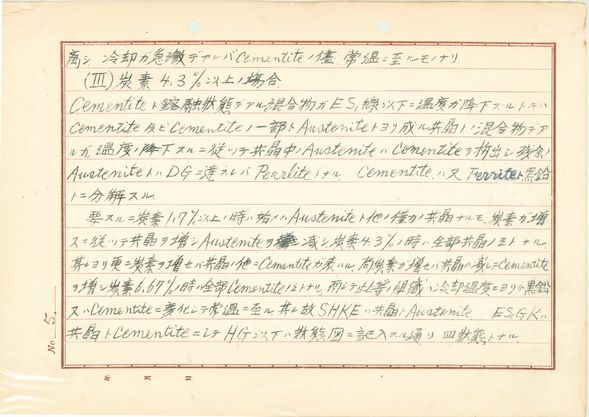 離シ 冷却ガ急激デアレバCementiteノ儘 常温ニ至ルモノナリ
(Ⅲ) 炭素4.3%以上ノ場合
Cementiteト鎔融狀態デアル混合物ガES,線以下ニ温度ガ降下スルトキハ
Cementite及ビCementiteノ一部トAusteniteトヨリ成ル共晶トノ混合物デア
ルガ温度ノ降下スルニ従ッテ共晶中ノAusteniteハCementiteヲ析出シ残余ノ
AusteniteトハDGニ達スレバPearliteトナル Cementiteハ又Ferriteト黒鉛
トニ分解スル
要スルニ炭素1.7%以上ノ時ハ始メハAusteniteト他ノ僅カノ共晶ナルモ炭素ガ増
スニ従ッテ共晶ヲ増シAusteniteヲ減シ炭素4.3%ノ時ハ全部共晶ノミトナル
其レヨリ更ニ炭素ヲ増セバ共晶ノ他ニCementiteガ表ハレ尚炭素ガ増セバ共晶ハ減シテCementite
ヲ増シ炭素6.67%ノ時ハ全部Cementiteノミトナル 而シテ此等ノ組織ハ冷却温度ニヨリテ黒鉛
又ハCementiteニ変化シテ常温ニ至ル 其レ故SHKEハ共晶トAustenite ESGKハ
共晶トCementiteニシテHG以下ハ狀態図ニ記入スル通リ 四狀態トナル
No 5,
年 月 日